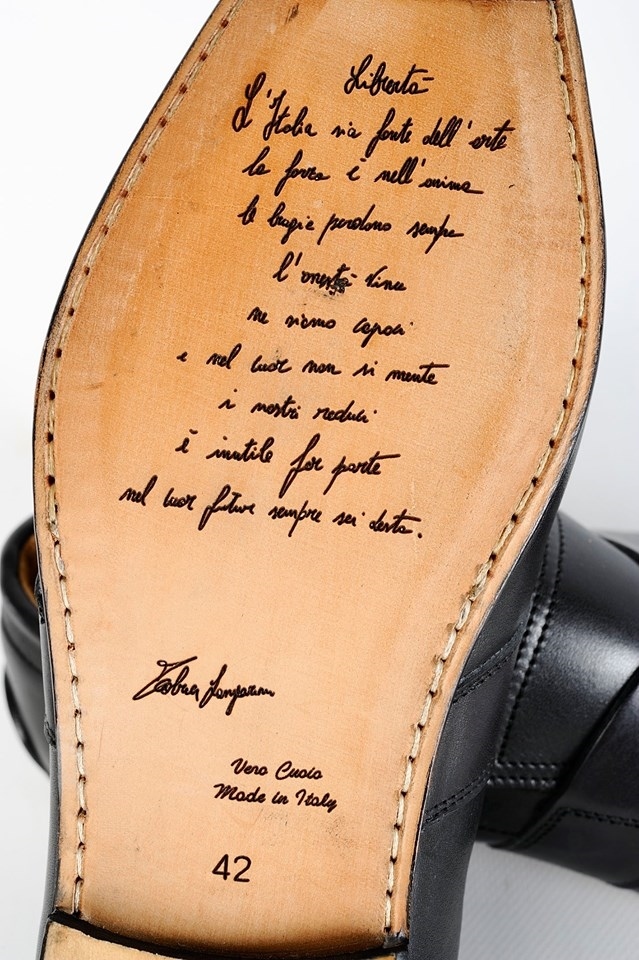 Libertà
L'Italia sia fonte dell'arte
la forza è nell'anima
le bugie perdono sempre
l'onestà vince
ne siamo capaci
e nel cuor non si mente
i nostri reduci
è inutile far parte
nel cuor futuro sempre sei desta.
Vero Cuoio
Made in Italy
42